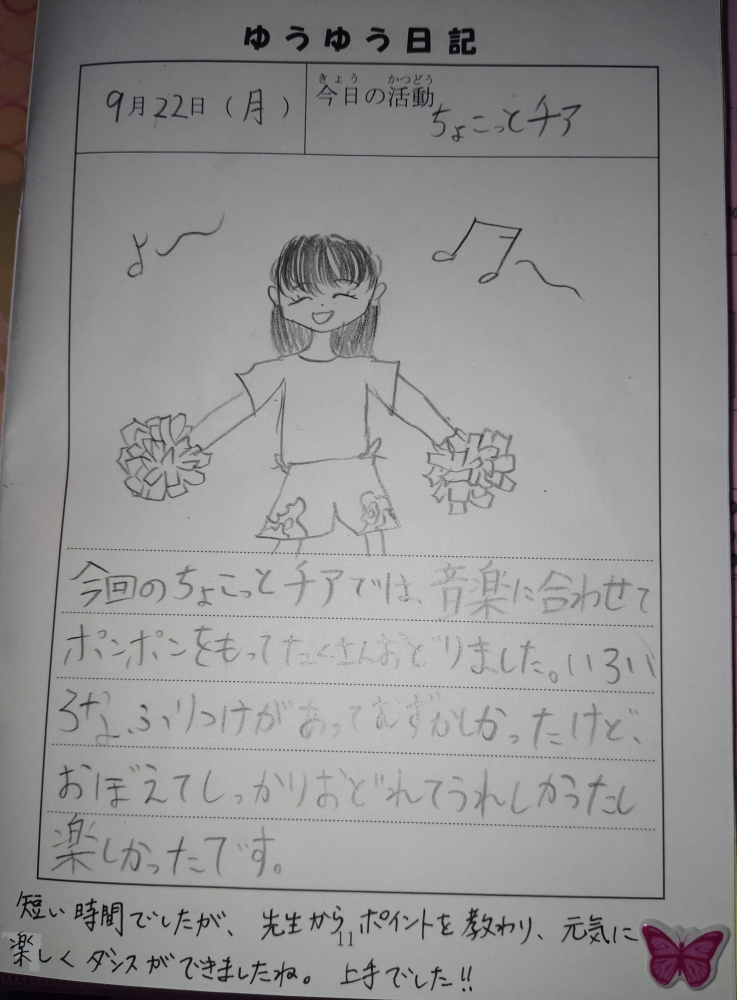 ゆうゆう日記
9月22日(月)
きょう かつどう
今日の活動
ちょこっとチア
今回のちょこっとチアでは、音楽に合わせて
ポンポンをもってたくさんおどりました。いろい
ろな、ふりつけがあってむずかしかったけど、
おぼえてしっかりおどれてうれしかったし
楽しかったです。
短い時間でしたが、先生からポイントを教わり、元気に
11
楽しくダンスができましたね。上手でした!!